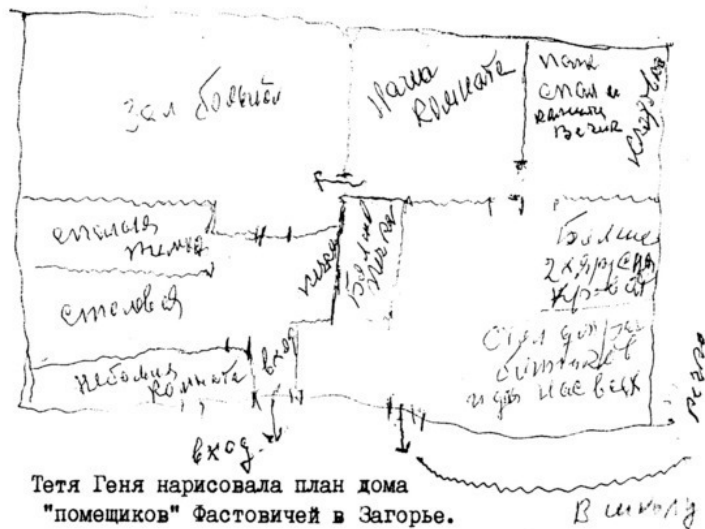 зал большой
наша
комната
папа
спал и
Кладовка
спальня
темная
столовая
небольш
комната
вход
печка
Больш
печка
Больше
2х ярусная
кровать
Стол для ра
и для нас всех
вход.
В школу
Тетя Геня нарисовала план дома
"помещиков" Фастовичей в Загорье.